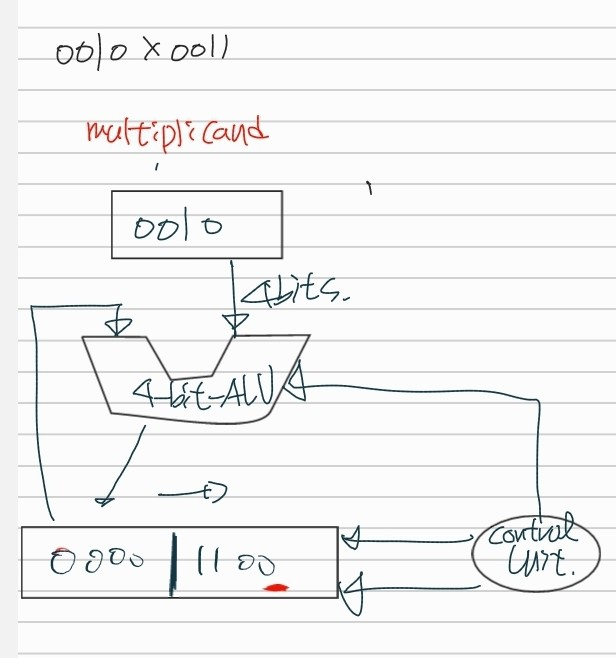 0010 × 0011
multiplicand
0010
4bits.
4-bit-ALU
0000 | 1100
control
Unit.